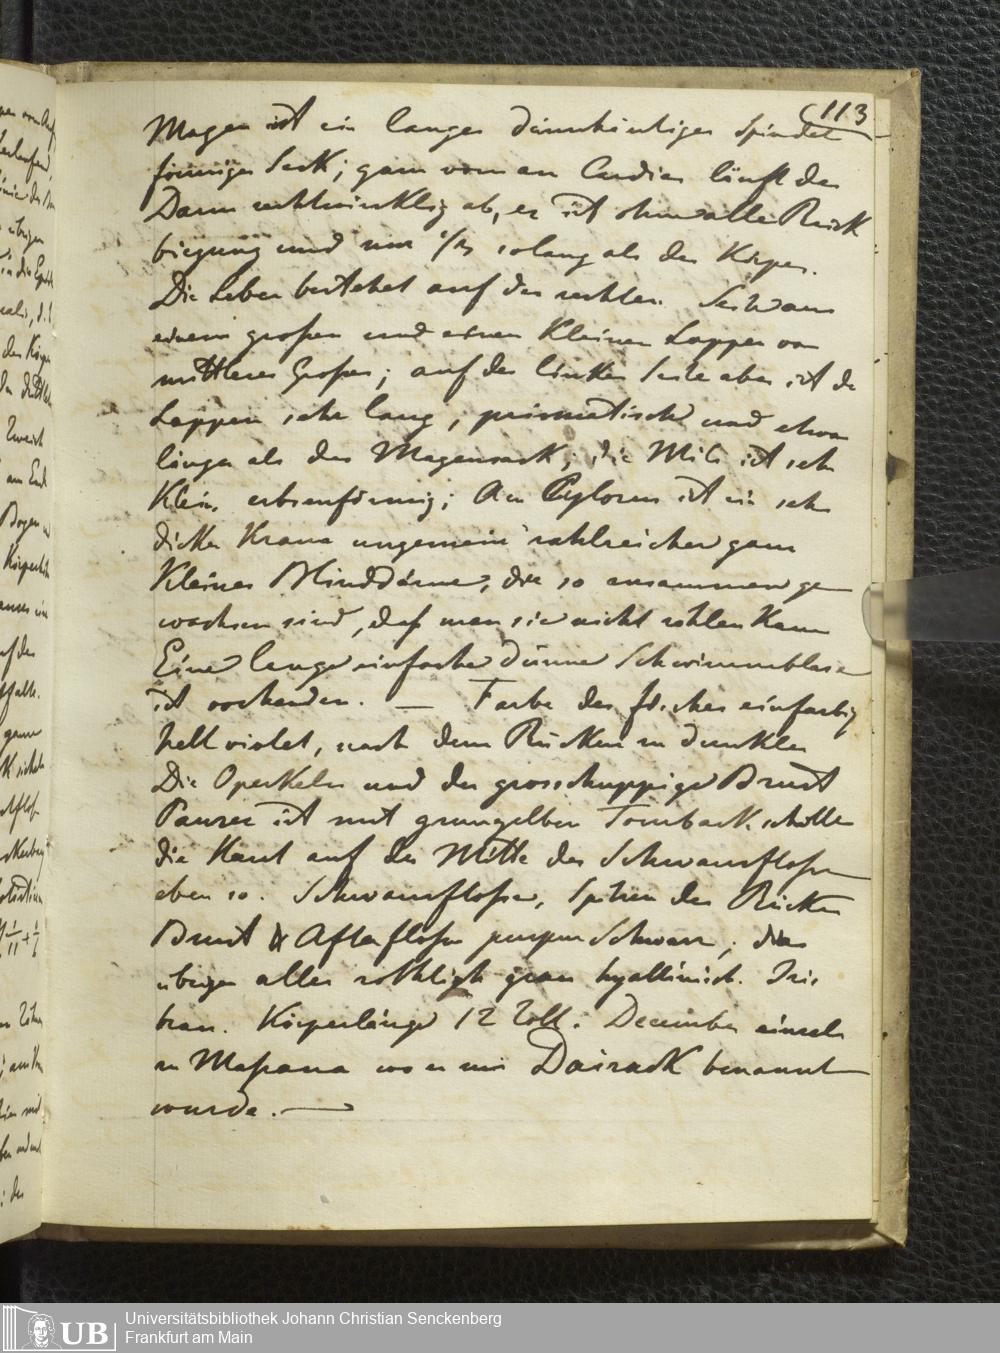 113
Magen ist ein langer dünnhäutiger Spindel
förmiger Sack; ganz vorn an Cardia läuft der
Darm rechtwinklig ab, er ist ohne alle Rück
biegung und nur so lang als der Körper.
Die Leber bestehet auf der rechten Seite aus
einem großen und einen Kleinen Lappen von
mittlerer Großer; auf der linken Seite aber ist der
Lappen sehr lang, prismatisch und etwas
länger als der Magensack; die Milz ist sehr
Klein, erbsenförmig; Am Pylorus ist ein sehr
dicker Kranz ungemein zahlreicher ganz
Kleiner Blinddärme, die so zusammen ge
wachsen sind, daß man sie nicht zählen Kann
Eine lange einfache dünne Schwimmblase
ist vorhanden. — Farbe des fisches einfarbig
hell violet, nach dem Rücken zu dunkler
Die Operkeln und der grosschuppige Brust
Panzer ist mit grungelben Tomback schiller
die Haut auf der Mitte der Schwanzflosse
eben so. Schwanzflosse, Spitzen der Rücken
Brust & Afterflosse purpur Schwarz; das
ubrige alles rothligh grau hyallinisch. Iris
braun. Körperlänge 12 Zoll. December einzeln
zu Massaua wo er mir Dairack benannt
wurde. —
Universitätsbibliothek Johann Christian Senckenberg
Frankfurt am Main
UB